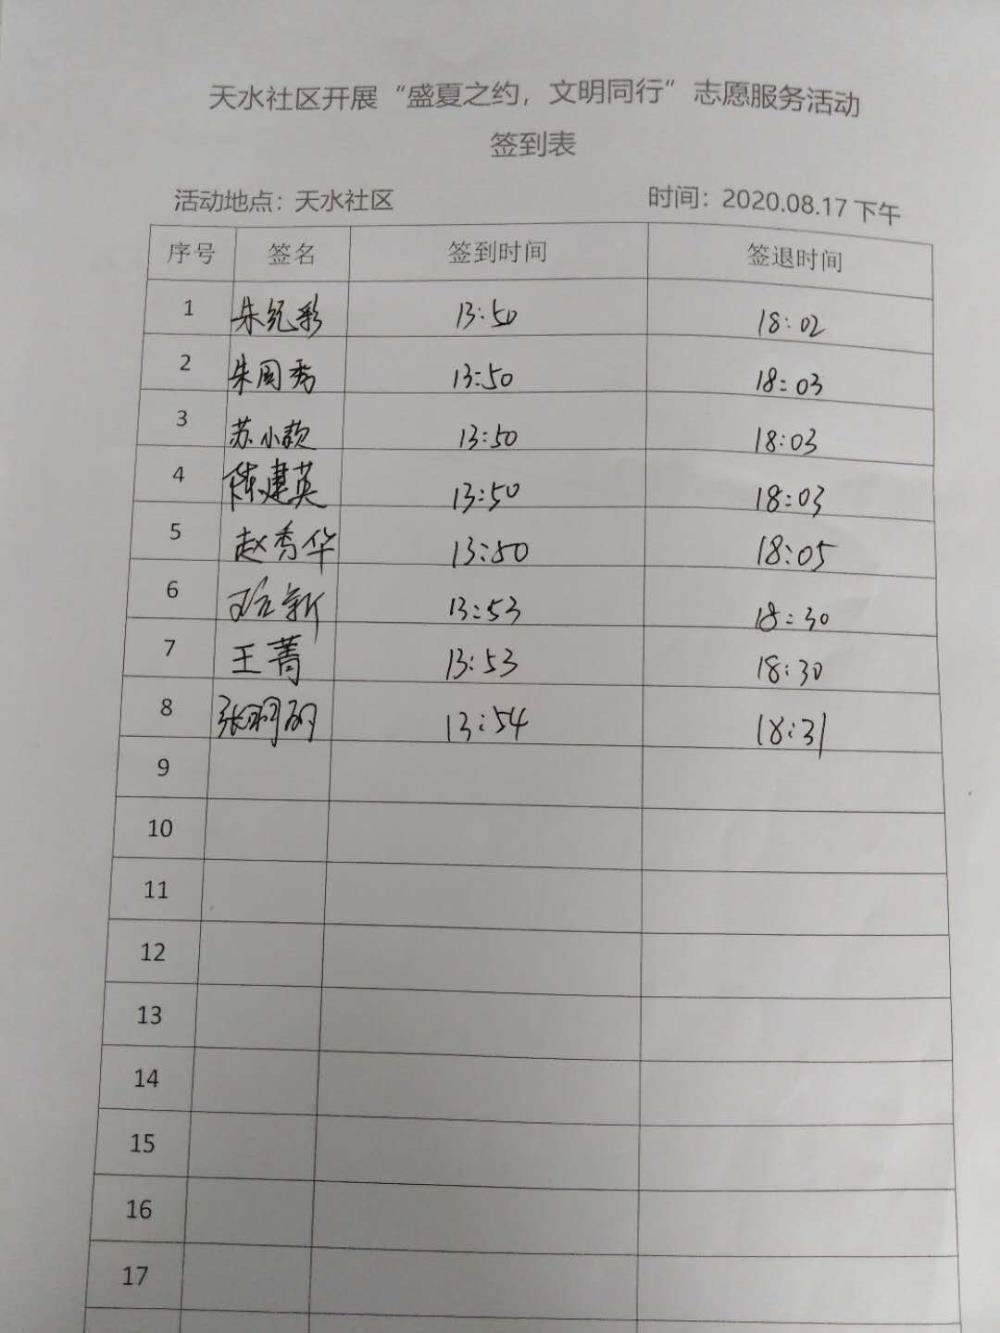 天水社区开展“盛夏之约，文明同行”志愿服务活动
签到表
活动地点：天水社区 时间：2020.08.17下午
序号 签名 签到时间 签退时间
1 朱纪彩 13:50 18:02
2 朱周秀 13:50 18:03
3 苏小款 13:50 18:03
4 陈建英 13:50 18:03
5 赵秀华 13:50 18:05
6 13:53 18:30
7 王菁 13:53 18:30
8 13:54 18:31
9
10
11
12
13
14
15
16
17